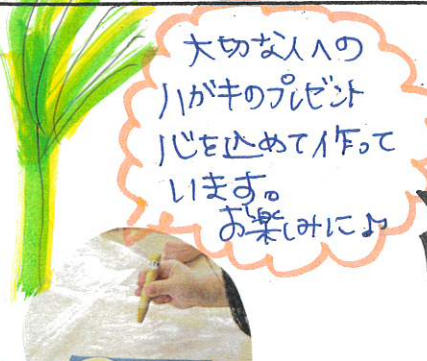 大切な人への
ハガキのプレゼント
心を込めて作って
います。
お楽しみに♪